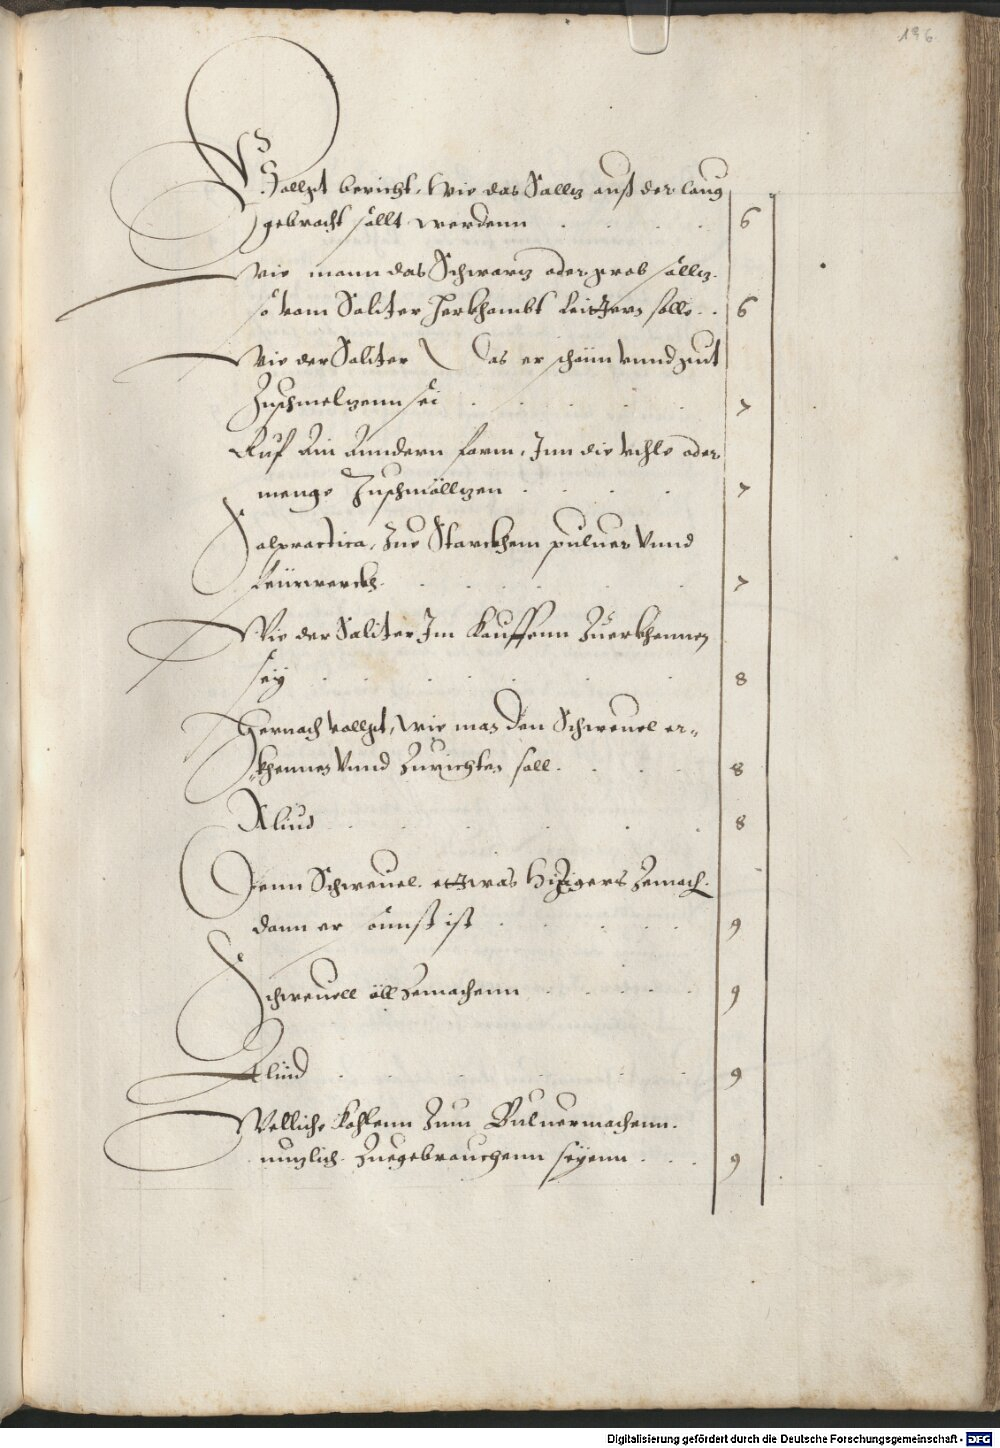 136
Vollgt bericht, Wie das Salltz auß der laug
gebracht sollt werdenn . . . . 6
Wie mann das Schwartz oder grob salltz.
so vom Saliter herkhombt leittern solle . . 6
Wie der Saliter Das er schön unnd gut
Zuschmeltzenn sei . . . . 7
Auf ain anndern form, Inn die
menge Zuschmölltzen . . . . 7
Salpractica, Zue Starckhem puluer vnnd
feürwerckh . . . . 7
Wie der Saliter Im Kauffenn Zuerkhennen
sey . . . . 8
Hernach vollgt, wie man den Schweuel er-
khennen vnnd Zurichten soll . . . . 8
Aliud . . . . 8
Denn Schweuel ettwas hitzigers Zemach.
dann er sunst ist . . . . 9
Schweuell öll Zemachenn . . . . 9
Aliud . . . . 9
Welliche Kohlenn Zum Puluermachenn.
nutzlich Zuegebrauchenn seyenn . . . 9
Digitalisierung gefördert durch die Deutsche Forschungsgemeinschaft - DFG